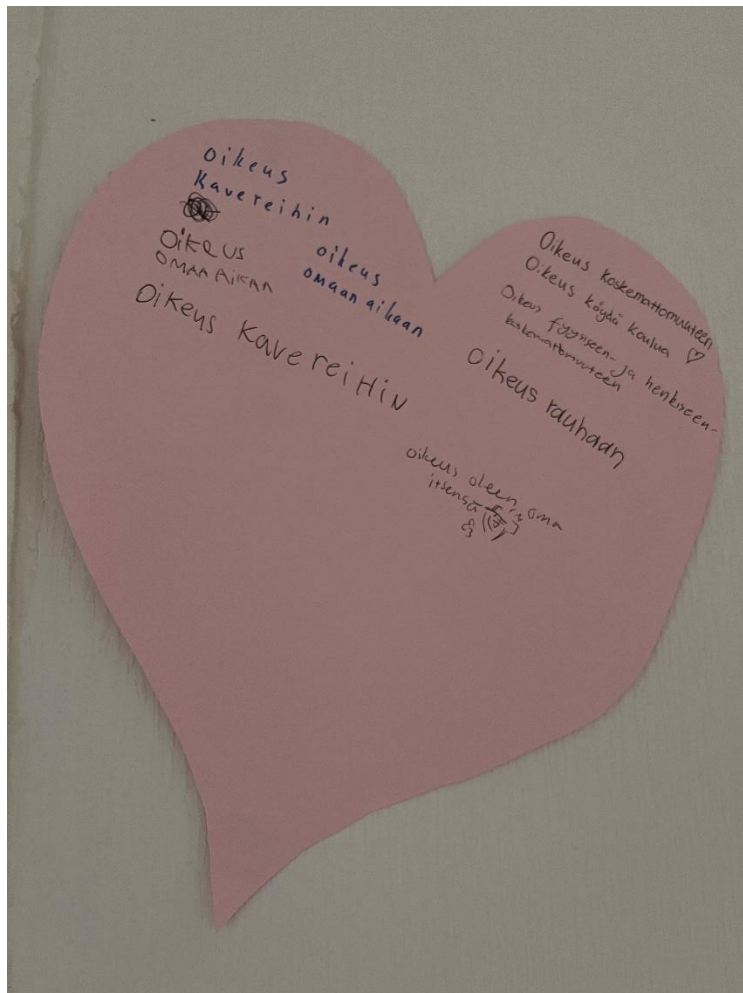 oikeus
kavereihin
OiKeUS
OMAAN AiKAAN
oikeus
omaan aikaan
Oikeus KavereiHiN
Oikeus koskemattomuuteen
Oikeus käydä koulua ♡
Oikeus fyysiseen- ja henkiseen-
koskemattomuuteen
Oikeus rauhaan
oikeus oleen oma
itsensä